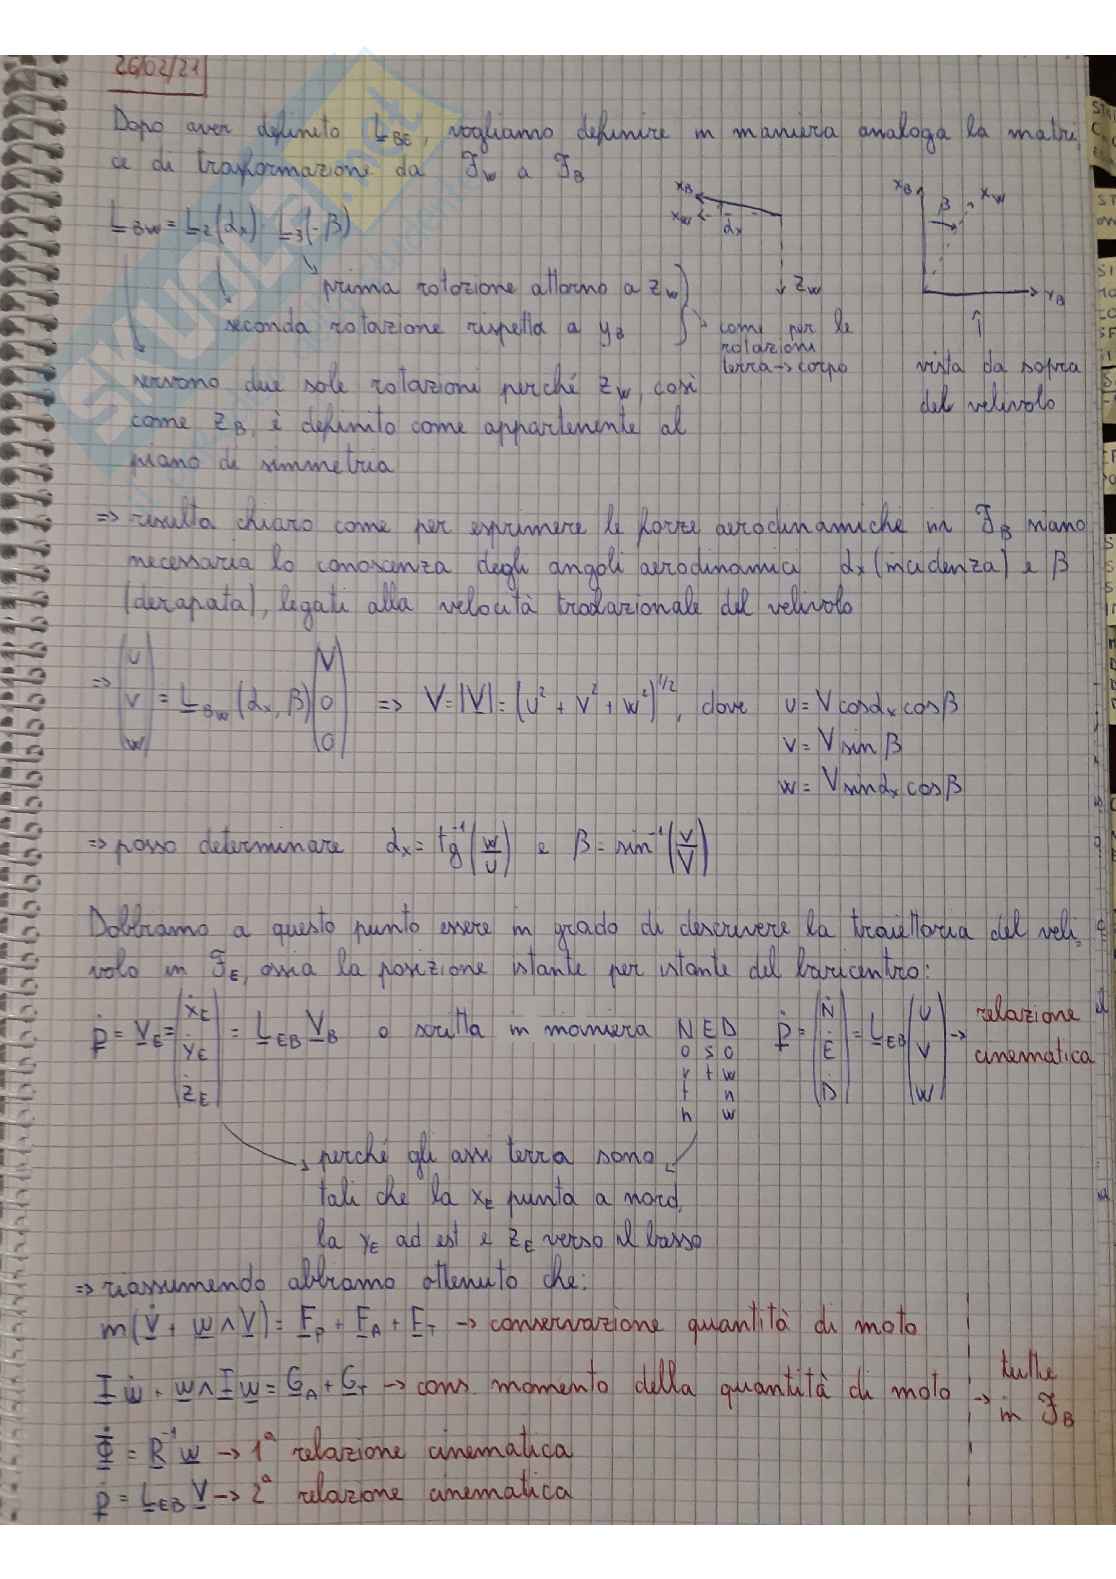 26/02/21
Dopo aver definito L_BE, vogliamo definire in maniera analoga la matri
ce di trasformazione da F_W a F_B
L_BW = L_2(α_x) · L_3(-β)
x_B
x_W
α_x
z_W
x_B
β
x_W
y_B
prima rotazione attorno a z_W
seconda rotazione rispetto a y_B
come per le
rotazioni
terra → corpo
vista da sopra
del velivolo
servono due sole rotazioni perché z_W, così
come z_B, è definito come appartenente al
piano di simmetria
⇒ risulta chiaro come per esprimere le forze aerodinamiche in F_B siano
necessaria la conoscenza degli angoli aerodinamici α_x (incidenza) e β
(derapata), legati alla velocità traslazionale del velivolo
⇒ (u v w) = L_BW (α_x, β) (V 0 0) ⇒ V = |V| = (u² + v² + w²)^1/2, dove u = V cosα_x cosβ
v = V sinβ
w = V sinα_x cosβ
⇒ posso determinare α_x = tg⁻¹(w/u) e β = sin⁻¹(v/V)
Dobbiamo a questo punto essere in grado di descrivere la traiettoria del veli
volo in F_E, ossia la posizione istante per istante del baricentro:
Ṗ = V_E = (ẋ_E ẏ_E ż_E) = L_EB V_B o scritta in maniera North Est Down Ṗ = (Ṅ Ė Ḋ) = L_EB (u v w) → relazione
cinematica
perché gli assi terra sono
tali che la x_E punta a nord,
la y_E ad est e z_E verso il basso
⇒ riassumendo abbiamo ottenuto che:
m(V̇ + ω ∧ V) = F_P + F_A + F_T → conservazione quantità di moto
I ω̇ + ω ∧ I ω = G_A + G_T → cons momento della quantità di moto
→ tutte
in F_B
Φ̇ = R⁻¹ ω → 1ª relazione cinematica
Ṗ = L_EB V → 2ª relazione cinematica